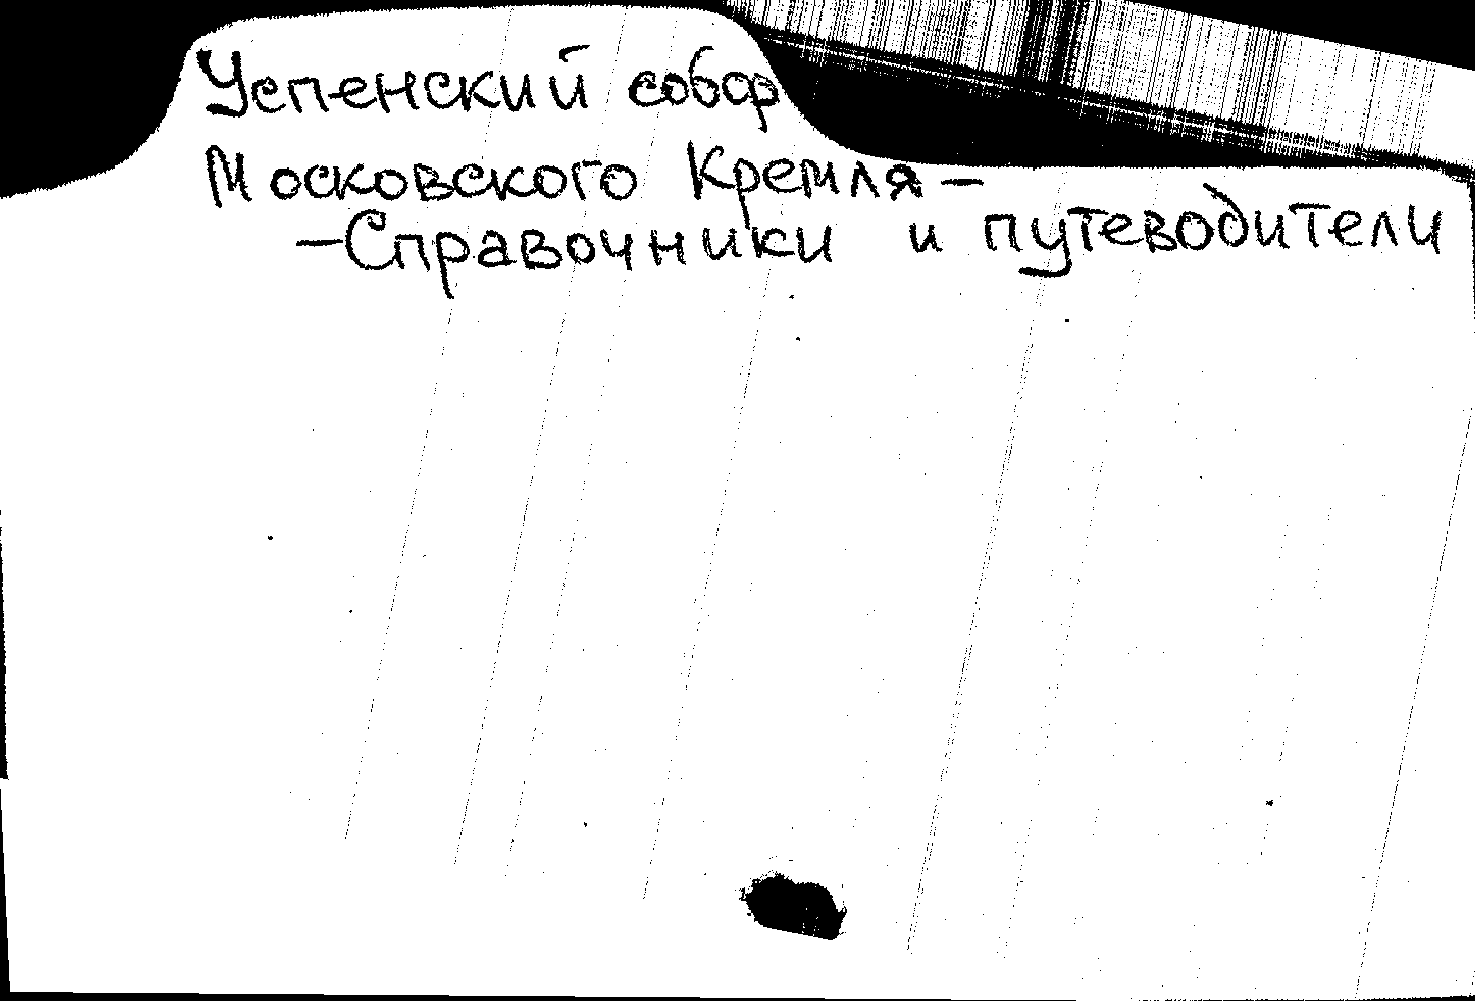 Успенский собор
Московского Кремля –
– Справочники и путеводители